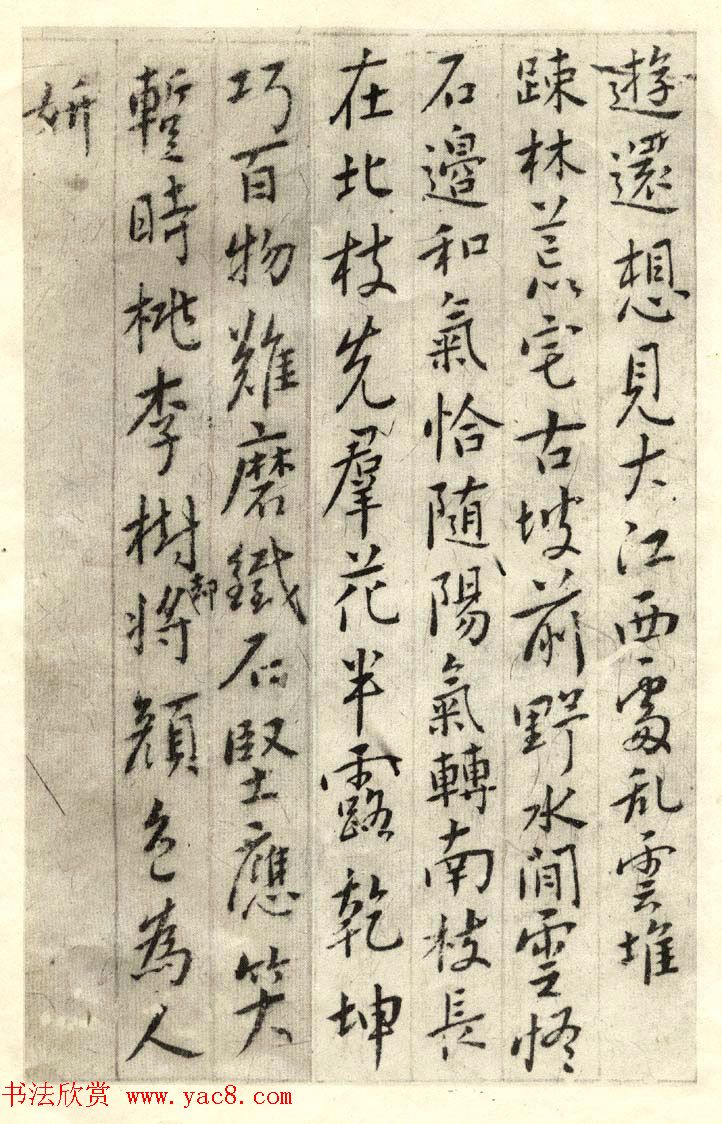 遊還想見大江西處乱雲堆
疎林荒宅古坡前野水閒雲怪
石邉和氣恰随陽氣轉南枝長
在北枝先羣花半露乾坤
巧百物難磨鐵石堅應笑
暫時桃李樹將却顔色為人
妍
书法欣赏 www.yac8.com